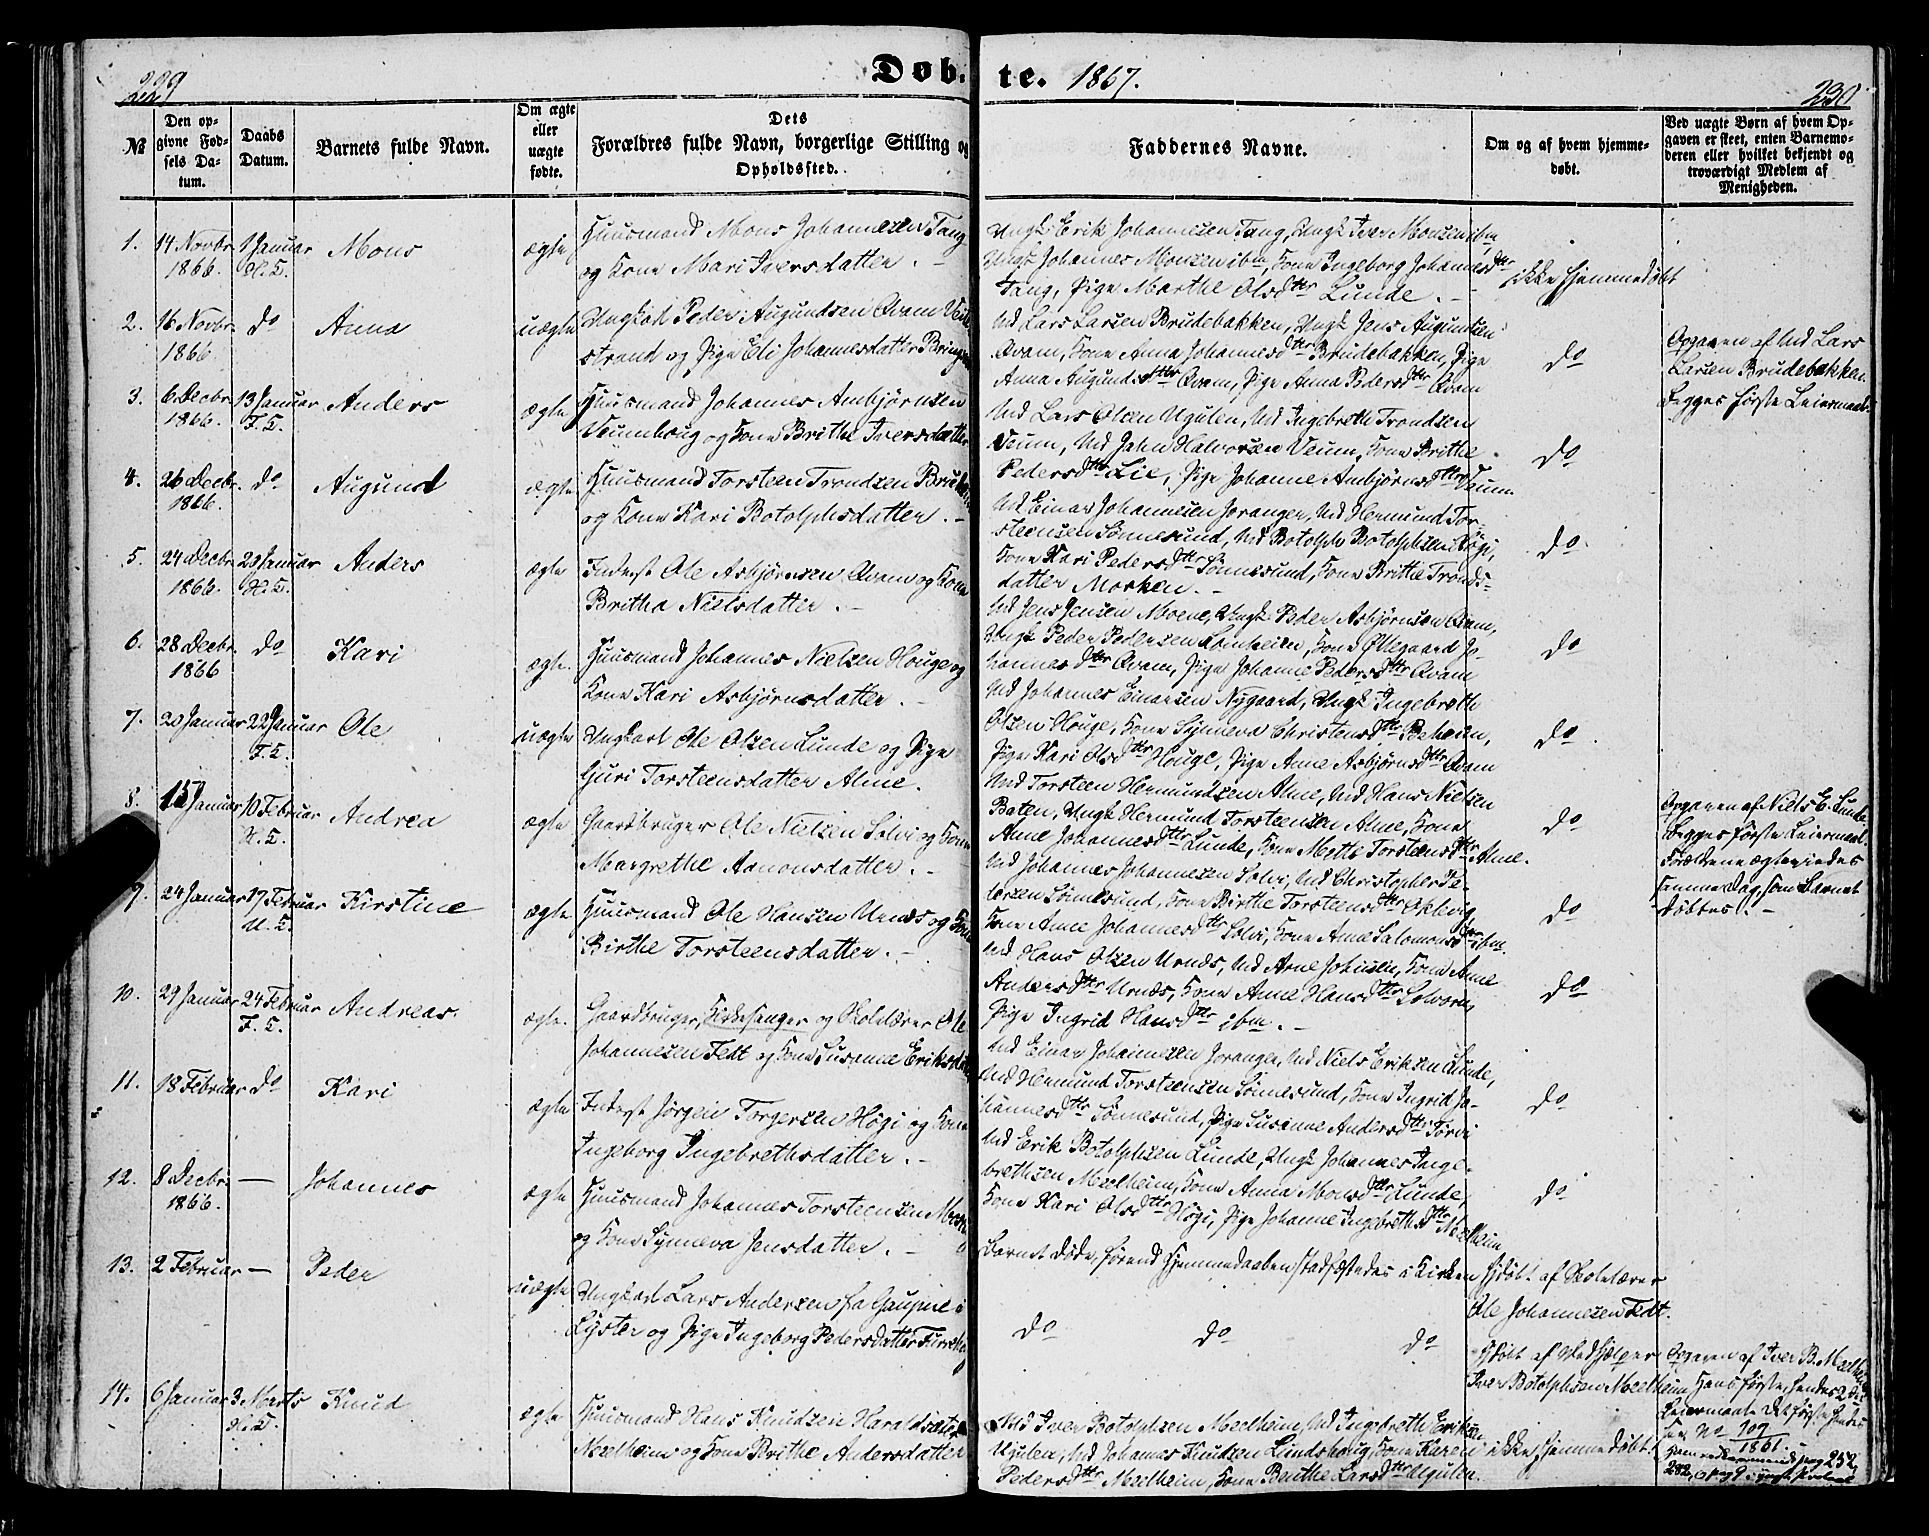 229
Døb-
te. 1867.
230
№
Den opgivne Fødsels Datum.
Daabs Datum.
Barnets fulde Navn.
Om ægte eller uægte fødte.
Dets Forældres fulde Navn, borgerlige Stilling og Opholdssted.
Faddernes Navne.
Om og af hvem hjemmedøbt.
Ved uægte Børn af hvem Opgaven er skeet, enten Barnemoderen eller hvilket bekjendt og troværdigt Medlem af Menigheden.
1. 14 Novbr. 1 Januar Mons ægte Huusmand Mons Johannesen Tang
1866. H.K. og Kone Mari Iversdatter.
Ungk: Erik Johannesen Tang, Ungk Iver Monsen ibm
Ungk Johannes Monsen ibm, Kone Ingeborg Johannesdtr
Tang, Pige Marthe Olsdtr Lunde.
ikke hjemmedøbt
2. 16 Novbr. do Anna uægte Ungkarl Peder Augundsen Qvam
1866 strand og Pige Eli Johannesdatter
Md Lars Larsen Brudebakken, Ungk Jens Augundsen
Qvam, Kone Anna Johannesdtr Brudebakken, Pige
Anna Augundsdtr Qvam, Pige Anna Pedersdtr Qvam
do
Opgaven af Md Lars
Larsen Brudebakken.
Begges første Leiermaal.
3. 6 Decbr. 13 Januar Anders ægte Huusmand Johannes Ambjørnsen
1866 F.K. Veumhoug og Kone Brithe Iversdatter
Md Lars Olsen Ugulen, Md Ingebreth Trondsen
Veum, Md John Halvorsen Veum, Kone Brithe
Pedersdtr Lie, Pige Johanne Ambjørnsdtr Veum.
do
4. 26 Decbr. do Augund ægte Huusmand Torsteen Trondsen
1866. og Kone Kari Botolphsdatter.
Md Einar Johannesen Joranger, Md Hermund Tor-
steensen Sønnesund, Md Botolph Botolphsen Høgi,
Kone Kari Pedersdtr Sønnesund, Kone Brithe Tronds-
datter Morken.
do
5. 24 Decbr. 20 Januar Anders ægte Inderst Ole Asbjørnsen Qvam og Kone
1866. H.K. Britha Nielsdatter.
Md Jens Jensen Moene, Ungk Peder Asbjørnsen Qvam,
Ungk Peder Pedersen Lomheim, Kone Øllegaard Jo-
hannesdtr Qvam, Pige Johanne Pedersdtr Qvam
do
6. 28 Decbr. do Kari ægte. Huusmand Johannes Nielsen Houge og
1866 Kone Kari Asbjørnsdatter.
Md Johannes Einarsen Nygaard, Ungk Ingebreth
Olsen Houge, Kone Synneva Christensdtr Beheim,
Pige Kari Olsdtr Houge, Pige Anne Asbjørnsdtr Qvam
do
7. 20 Januar 22 Januar Ole uægte Ungkarl Ole Olsen Lunde og Pige
F.K. Guri Torsteensdatter Alme.
Md Torsteen Hermundsen Alme, Md Hans Nielsen
Baten, Ungk Hermund Torsteensen Alme, Kone
Anne Johannesdtr Lunde, Kone Mette Torsteensdtr Alme.
do
Opgaven af Niels E. Lunde
Begges første Leiermaal.
Forældrene ægteviedes
samme Dag, som Barnet
døbtes.
8. 15 Januar 10 Februar Andrea ægte Gaardbruger Ole Nielsen Solvi og Kone
U.K. Margrethe Aamonsdatter.
Md Johannes Johannesen Solvi, Md Christopher Pe-
dersen Sønnesund, Kone Birthe Torsteensdtr Oklevig,
Kone Anne Johannesdtr Solvi, Kone Anne Salomonsdtr ibm.
do
9. 24 Januar 17 Februar Kirstine ægte Huusmand Ole Hansen Urnes og Kone
U.K. Birthe Torsteensdatter.
Md Hans Olsen Urnes, Md Arne Johnsen, Kone Anne
Andersdtr Urnes, Kone Anne Hansdtr Solvorn,
Pige Ingrid Hansdtr ibm.
do
10. 29 Januar 24 Februar Andreas. ægte. Gaardbruger, Kirkesanger og Skolelærer Ole
F.K. Johannesen Fedt og Kone Susanne Eriksdatter
Md Einar Johannesen Joranger, Md Niels Eriksen Lunde,
Md Hermund Torsteensen Sønnesund, Kone Ingrid Jo-
hannesdtr Sønnesund, Pige Susanne Andersdtr Torvi
do
11. 18 Februar do Kari ægte Inderst Jørgen Torgersen Høgi og Kone
Ingeborg Ingebrethsdatter.
Md Erik Botolphsen Lunde, Ungk Johannes Inge-
brethsen Meelheim, Kone Anna Monsdtr Lunde,
Kone Kari Olsdtr Høgi, Pige Johanne Ingebrethsdtr Meelheim
do
12. 8 Decbr. — Johannes ægte Huusmand Johannes Torsteensen
1866. og Kone Synneva Jensdatter.
Barnet døde, førend Hjemmedaaben stadfæstedes i Kirken
Hjdøbt af Skolelærer
Ole Johannesen Fedt.
13. 2 Februar — Peder uægte Ungkarl Lars Andersen fra Gaupne i
Lyster og Pige Ingeborg Pedersdatter
do do do
Hjdøbt af Medhjælper
Iver Botolphsen Meelheim
Opgaven af Iver B. Meelheim
Hans første, hendes 2det
Leiermaal. Det første findes
No 109
1861.
pag 252,
282,
14. 6 Januar 3 Marts Knud ægte Huusmand Hans Knudsen
H.K. Meelheim og Kone Brithe Andersdatter
Md Iver Botolphsen Meelheim, Md Ingebreth Eriksen
Ugulen, Md Johannes Knudsen Lundshoug, Kone Karen
Pedersdtr Meelheim, Kone Benthe Larsdtr Ugulen.
ikke hjemmedøbt.